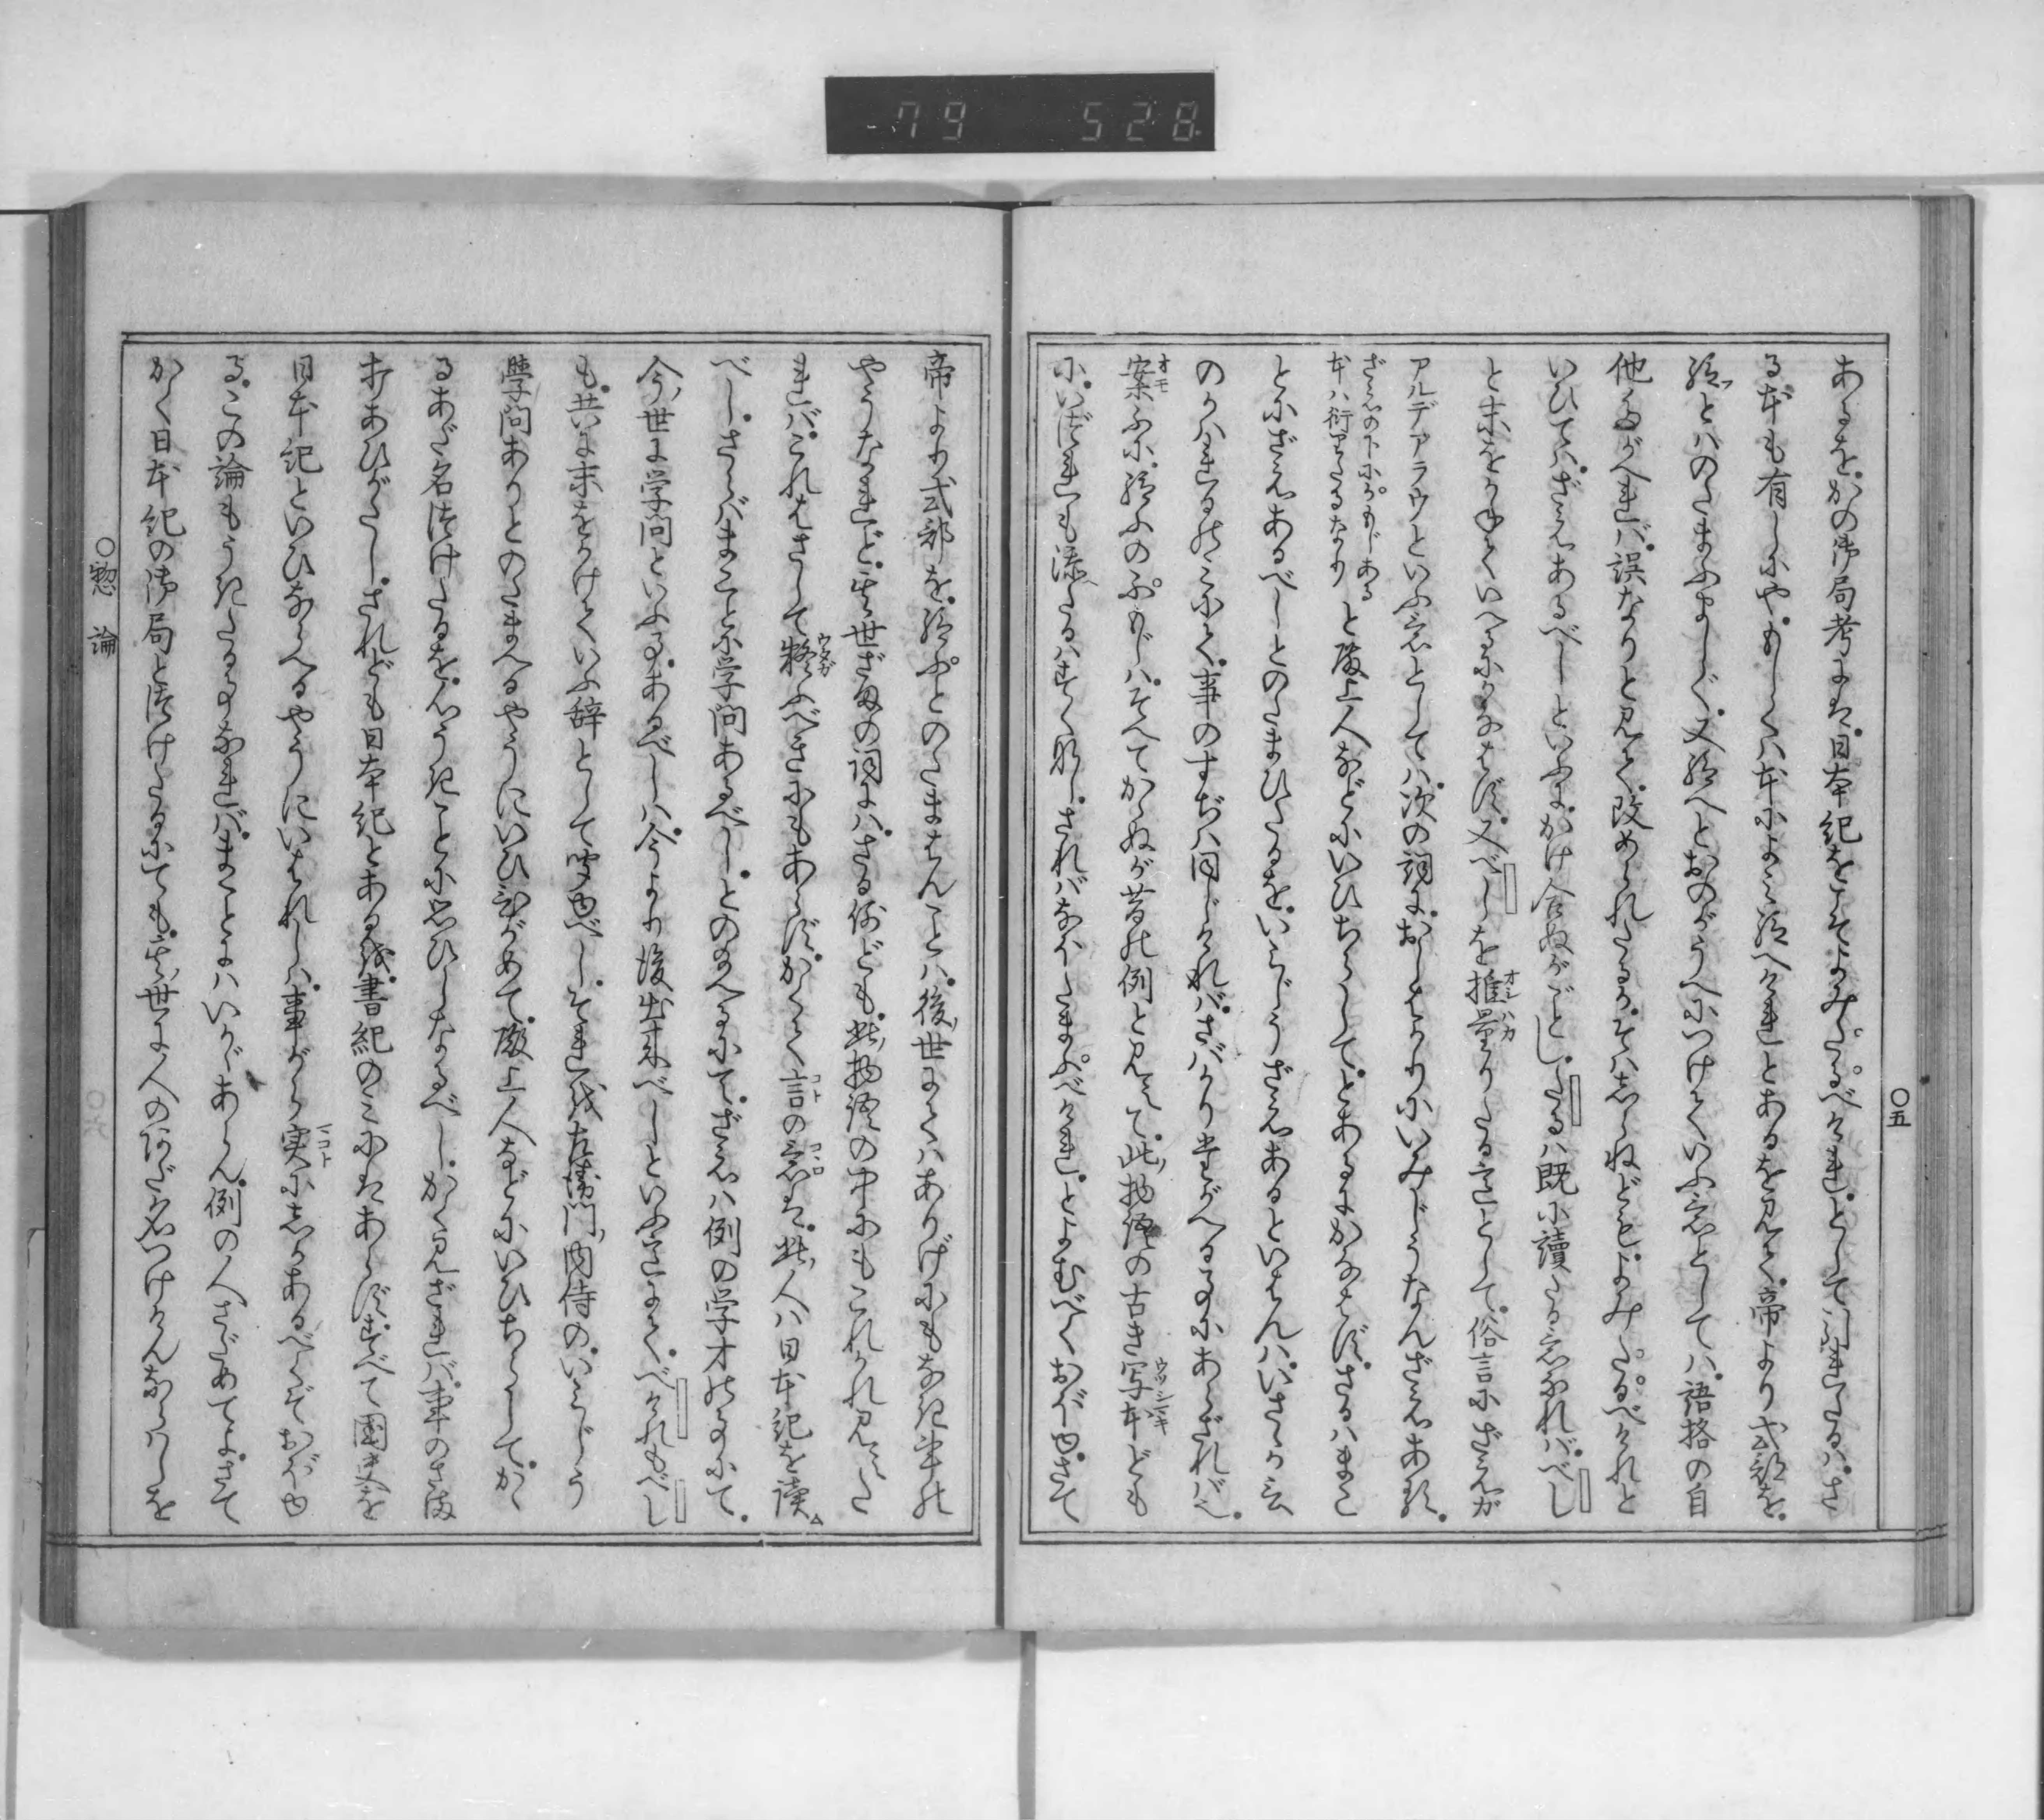 79 528
〇五
あるを。かの御局考には。日本紀をこそよみたるべけれ。として引れたるは。さ
る本も有しにや。もしくハ本によみ給へけれとあるを見て。帝より式部を。
給とハのたまふまじく。又給へとおのがうへにつけていふ意としてハ。語格の自
他たがへれバ。誤なりと見て。改められたるか。そハしらねども。よみたるべけれと
いひてハ。ざえあるべしといふに。かけ合ぬがごとし。たるハ既に讀たる意なれバ。べし
と末をかねていへるにかなはず。又べしを推量りたる意として。俗言にざえガ
アルデアラウといふ意としてハ。次の詞に。おしはかりにいみじうなんざえある。
ざえの下にがもじある
本ハ衍りたるなり
と殿上人などにいひちらして。とあるにかなはず。さるハまこ
とにざえあるべしとのたまひたるを。いみじうざえあるといはんハ。いさゝか言
のかハれるのみにて。事のすぢハ同じけれバ。さバかりたがへる事にあらざれバ也。
案ふに。給ふのふもじハ。そへてかゝぬが昔の例と見えて。此物語の古き写本ども
に。いづれも添たるハすくなし。さればなほたまふべけれ。とよむべくおぼゆ。さて
帝より式部を。給ふとのたまはんことハ。後世にてハありげにもなき事の
やうなれど。其世ざまの詞にハ。さる例ども。此物語の中にもこれかれ見えた
れバ。これはさして疑ふべきにもあらず。かくて言の意は。此人ハ日本紀を讀
べし。さらバまことに学問あるべし。とのたまへるにて。ざえハ例の学才の事にて。
今世に学問といふ事。あるべしハ。今より後出来べしといふ意にて。べけれもべし
も。共に末をかけていふ辞として聞ゆべし。それを左衛門内侍の。いみじう
學問ありとのたまへるやうにいひゆがめて。殿上人などにいひちらして。かく
るあだ名つけたるを。心うきことに思ひしなるべし。かく見ざれバ。事のさま
打あひがたし。されども日本紀とあるを。書紀のみにはあらず。すべて國史を
日本紀といひならへるやうにいはれしハ。事がら実にしかあるべくぞおぼゆ
る。この論もうきたる事なれバ。まことにハいかゞあらん。例の人さだめてよ。さて
かく日本紀の御局とつけたるにても。其世に人のあだ名つけけんならハしを
〇惣論